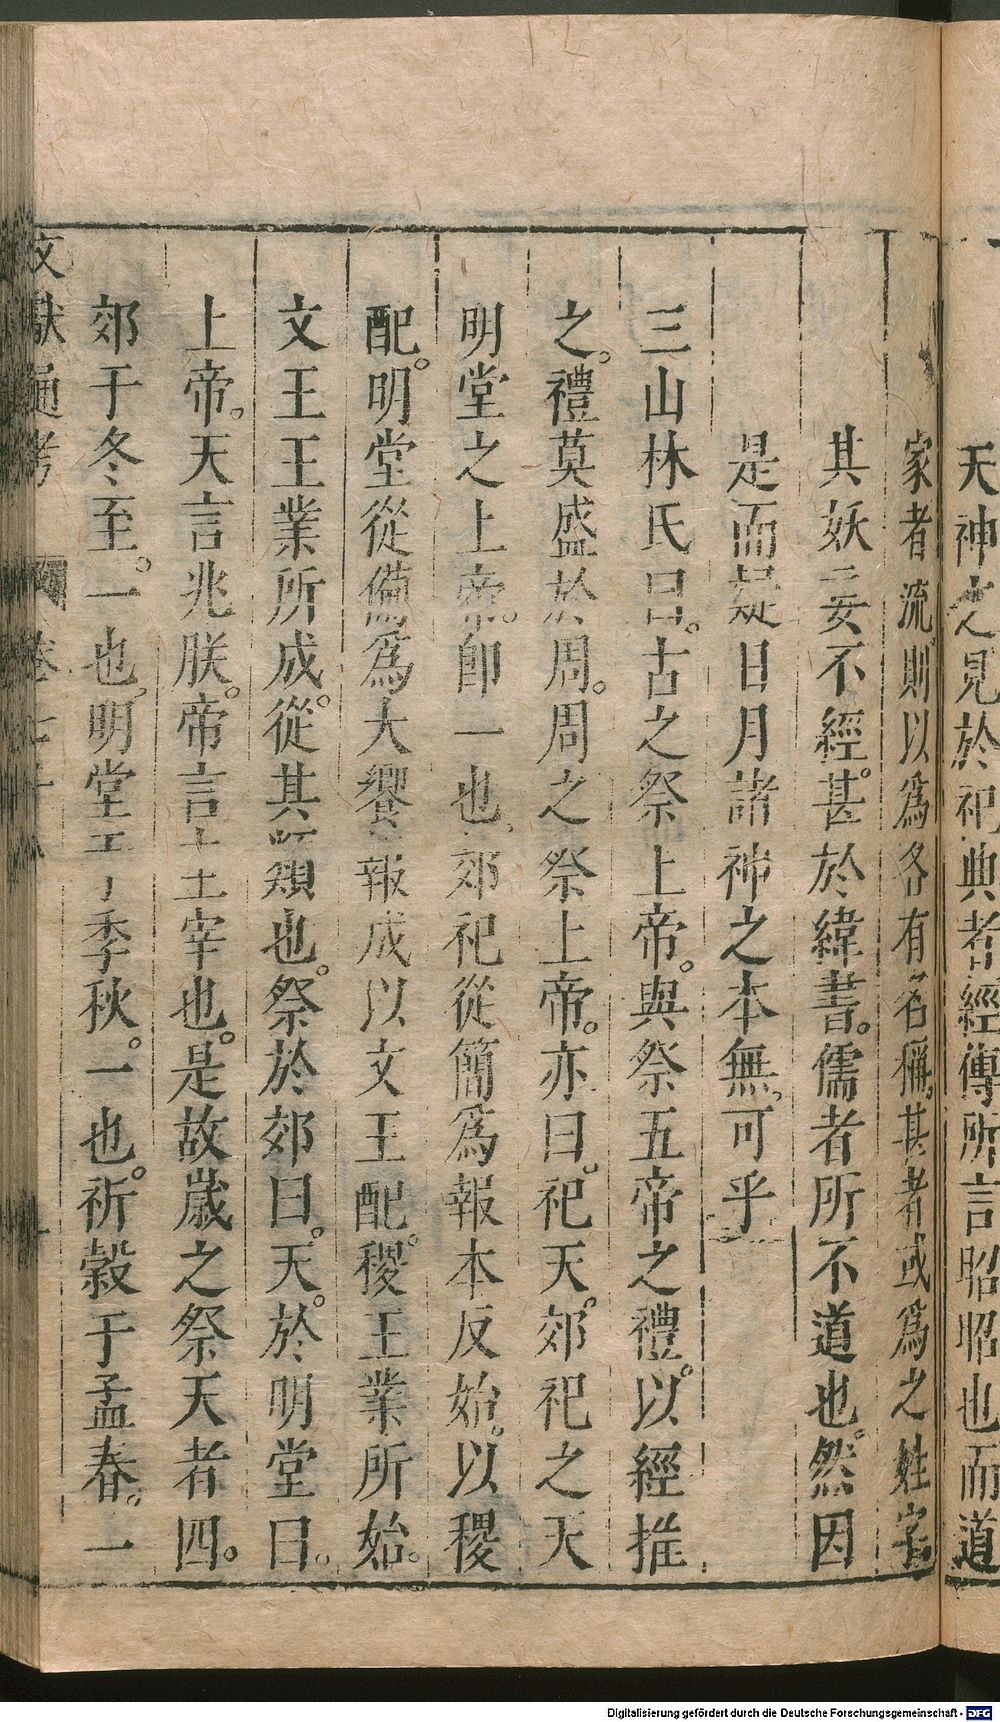 天神之見於祀典者經傳所言昭昭也而道
家者流則以爲各有名稱其者或爲之姓字
其妖妄不經甚於緯書。儒者所不道也。然因
是而疑日月諸神之本無可乎
三山林氏曰。古之祭上帝。與祭五帝之禮。以經推
之。禮莫盛於周。周之祭上帝。亦曰。祀天。郊祀之天
明堂之上帝。卽一也。郊祀從簡爲報本反始。以稷
配。明堂從備爲大饗報成以文王配。稷王業所始。
文王王業所成。從其類也。祭於郊曰。天。於明堂曰。
上帝。天言兆朕。帝言主宰也。是故歲之祭天者四。
郊于冬至。一也。明堂于季秋。一也。祈穀于孟春。一
文獻通考 卷七十
Digitalisierung gefördert durch die Deutsche Forschungsgemeinschaft - DFG